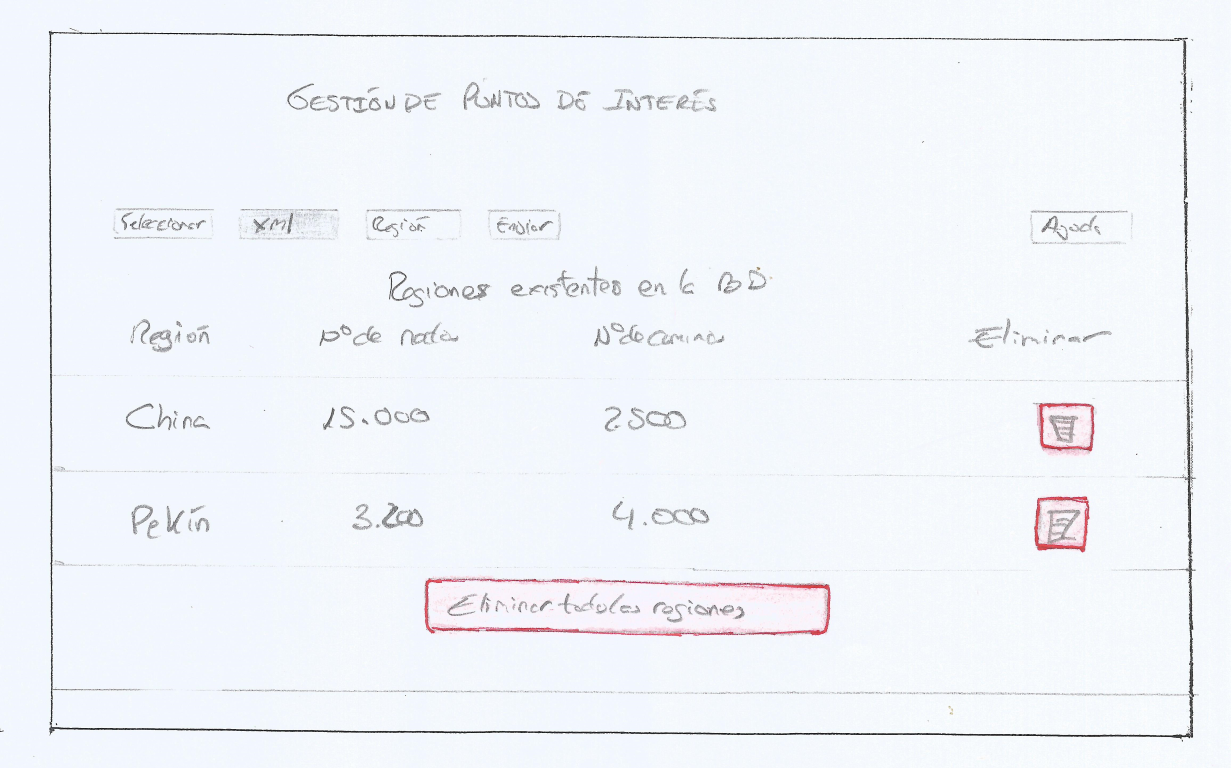 GESTIÓN DE PUNTOS DE INTERÉS
Seleccionar XMl Región Enviar Ayuda
Regiones existentes en la BD
Región Nº de nodos Nº de caminos Eliminar
China 15.000 2500
Pekín 3.200 4.000
Eliminar todas las regiones